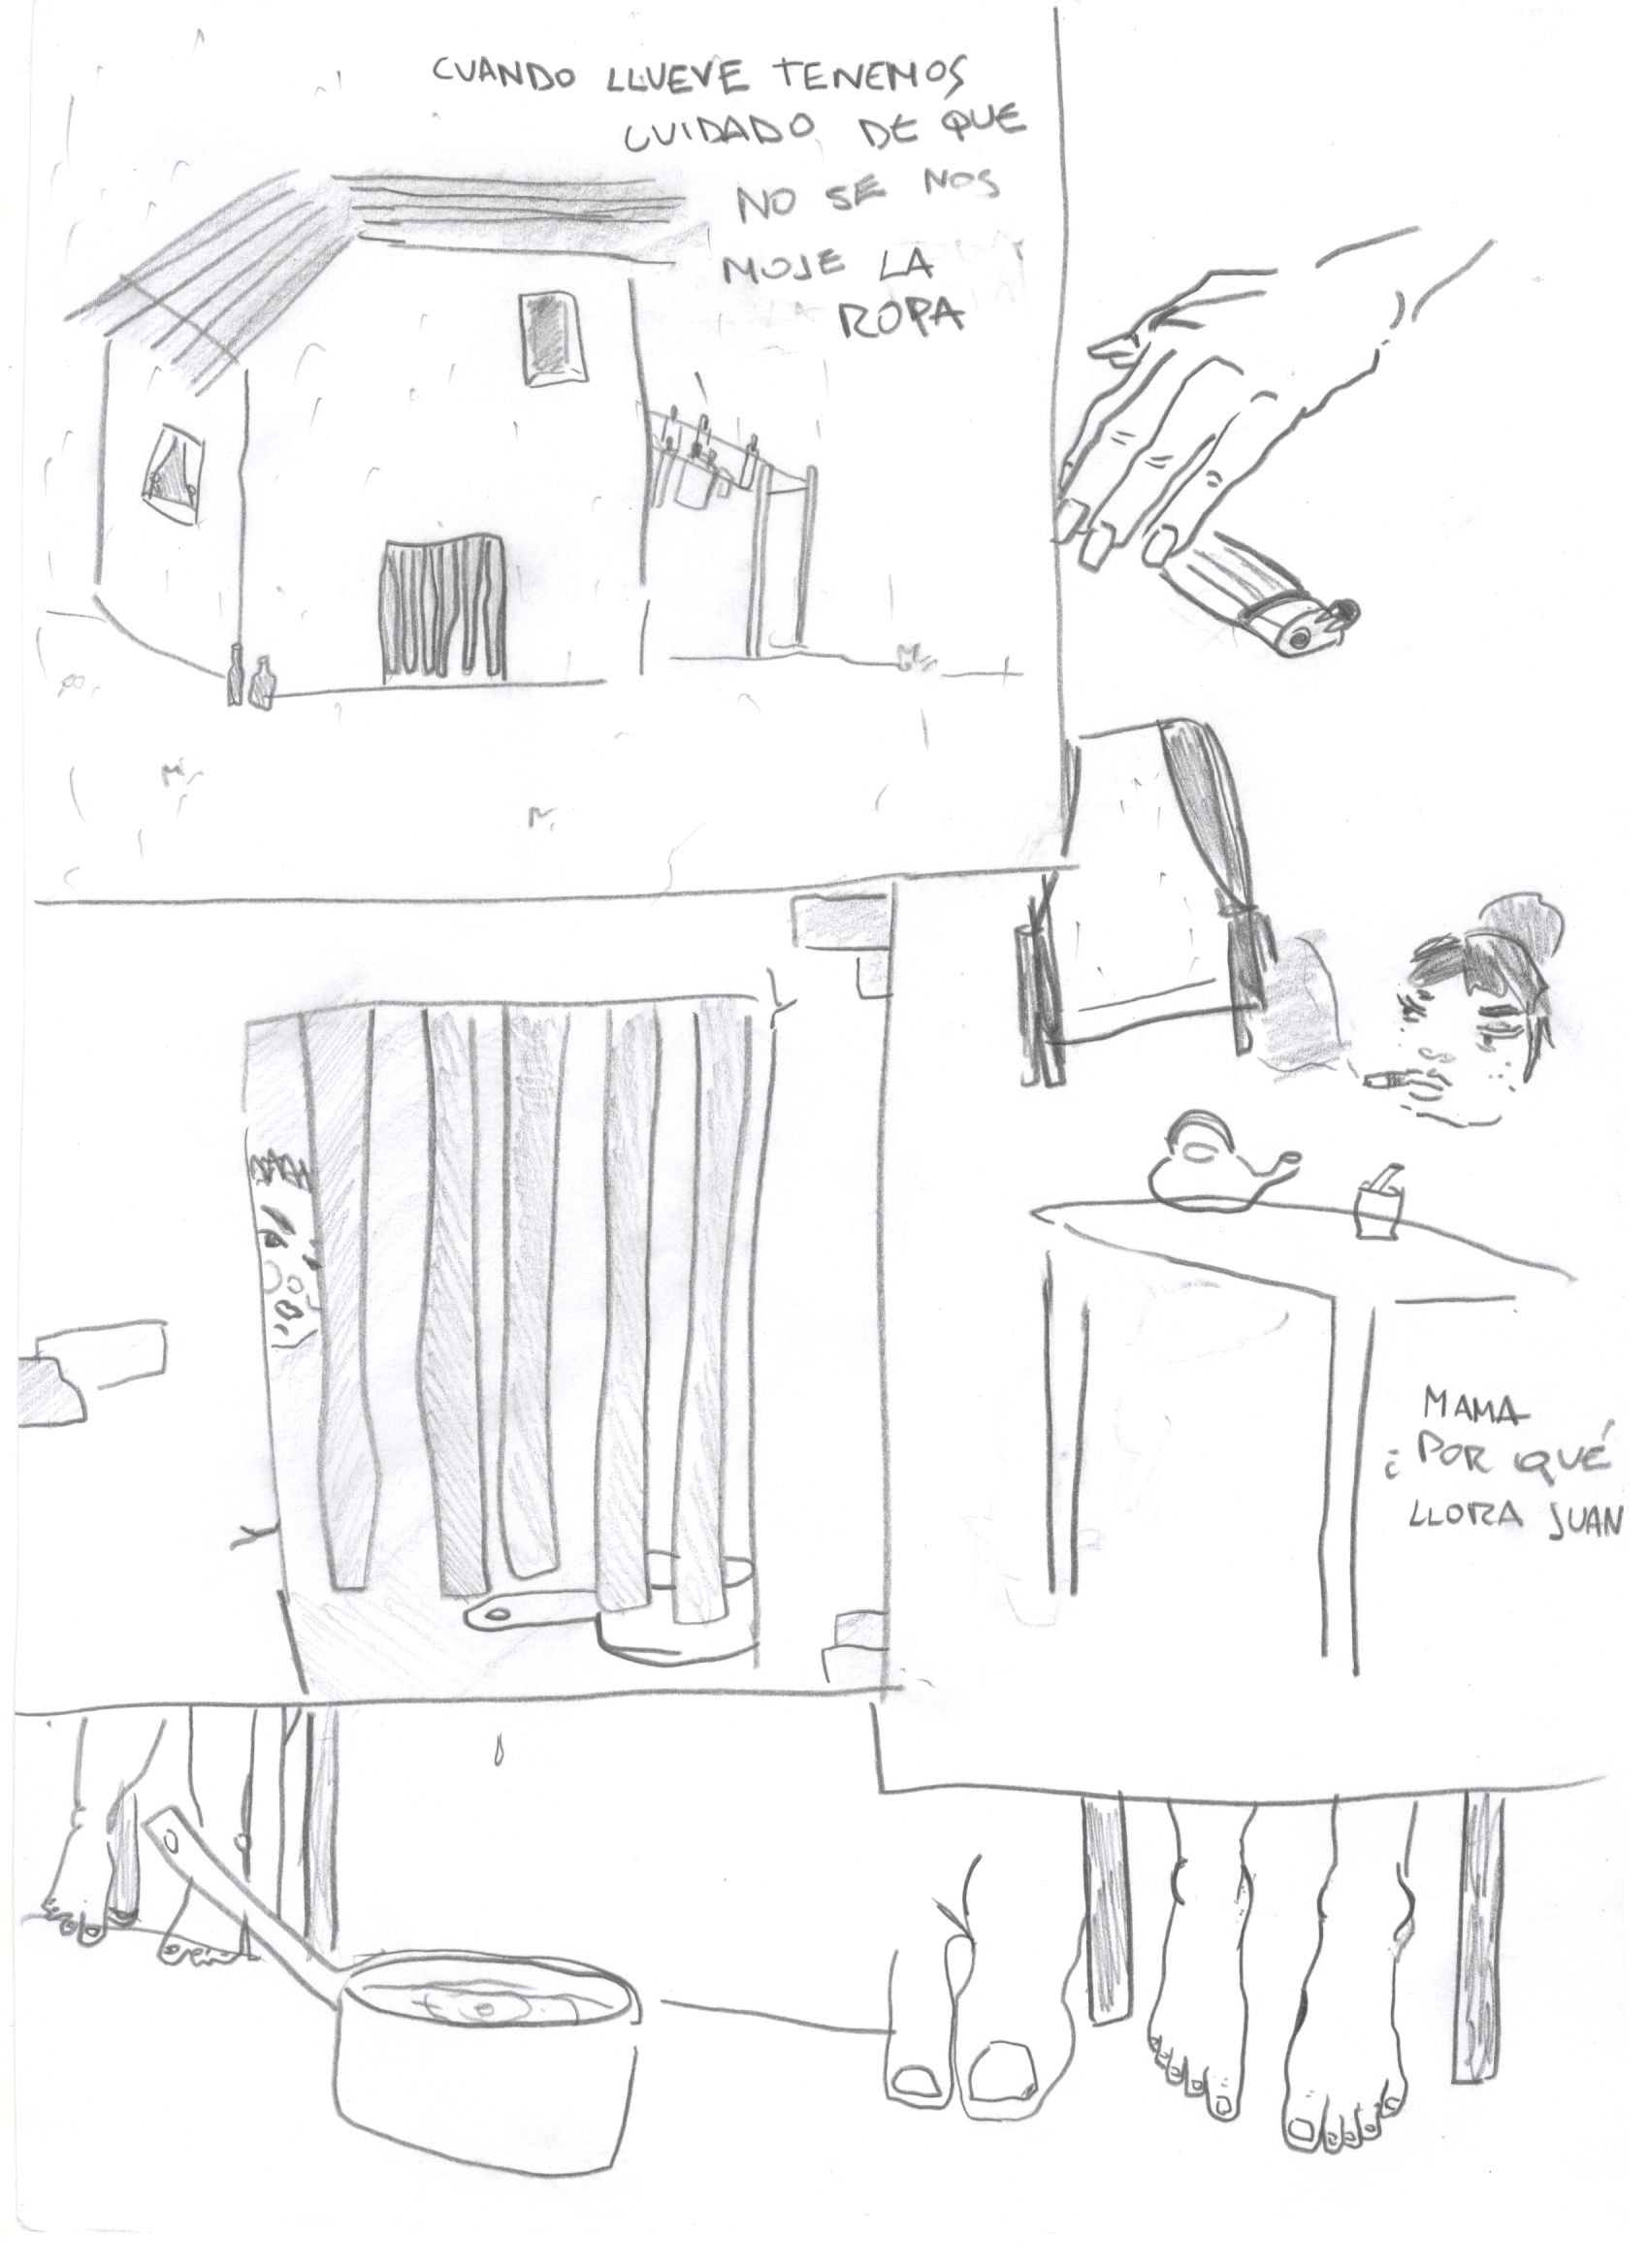 CUANDO LLUEVE TENEMOS
CUIDADO DE QUE
NO SE NOS
MOJE LA
ROPA
MAMA
¿POR QUÉ
LLORA JUAN